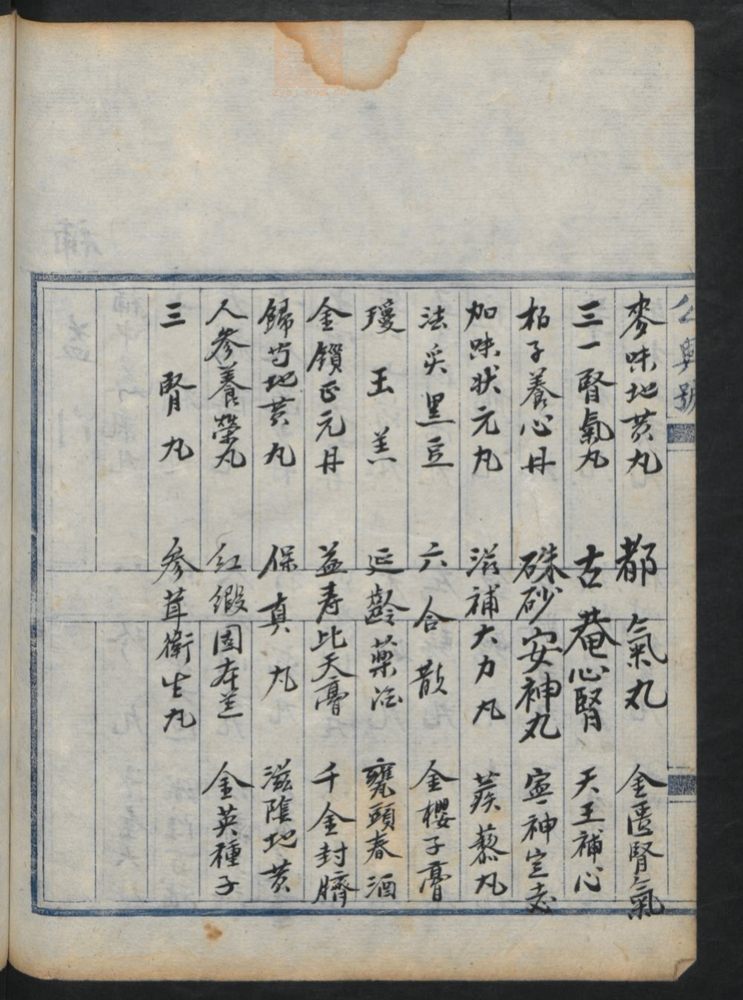 公興號
麥味地黄丸 都氣丸 金匱腎氣
三一腎氣丸 古菴心腎 天王補心
柏子養心丹 硃砂安神丸 寧神定志
加味狀元丸 滋補大力丸 蒺藜丸
法炙黑豆 六合散 金櫻子膏
瓊玉羔 延齡藥酒 甕頭春酒
金鎖正元丹 益寿比天膏 千金封臍
歸芍地黄丸 保真丸 滋陰地黄
人參養榮丸 紅緞固本兰 金英種子
三腎丸 參茸衛生丸